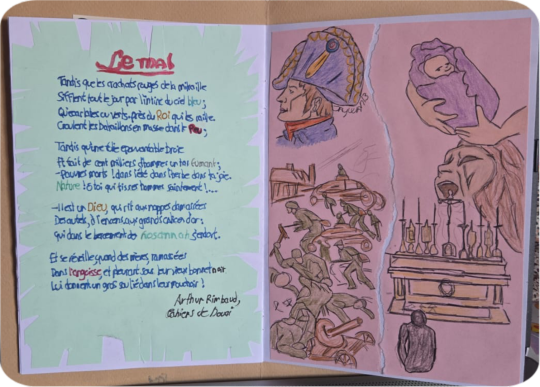 Le mal
Tandis que les crachats rouges de la mitraille
Sifflent tout le jour par l'infini du ciel bleu ;
Qu'écarlates ou verts, près du Roi qui les raille,
Croulent les bataillons en masse dans le feu ;
Tandis qu'une folie épouvantable broie
Et fait de cent milliers d'hommes un tas fumant ;
- Pauvres morts ! dans l'été, dans l'herbe, dans ta joie,
Nature ! ô toi qui fis ces hommes saintement !....
- Il est un Dieu, qui rit aux nappes damassées
Des autels, à l'encens, aux grands calices d'or ;
Qui dans le bercement des hosannah s'endort,
Et se réveille, quand des mères, ramassées
Dans l'angoisse, et pleurant sous leur vieux bonnet noir
Lui donnent un gros sou lié dans leur mouchoir !
Arthur Rimbaud,
Cahiers de Douai